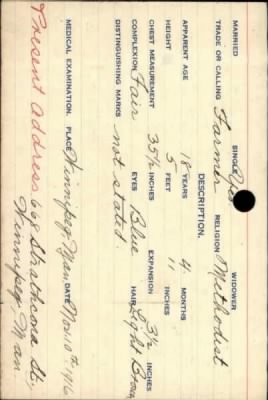 MARRIED SINGLE Yes WIDOWER
TRADE OR CALLING Farmer RELIGION Methodist
DESCRIPTION.
APPARENT AGE 18 YEARS 4 MONTHS
HEIGHT 5 FEET 11 INCHES
CHEST MEASUREMENT 35½ INCHES EXPANSION 3½ INCHES
COMPLEXION Fair EYES Blue HAIR Light Brown
DISTINGUISHING MARKS not stated
MEDICAL EXAMINATION. PLACE Winnipeg, Man. DATE Nov. 10th 1916
Present Address 668 Strathcona St.,
Winnipeg, Man